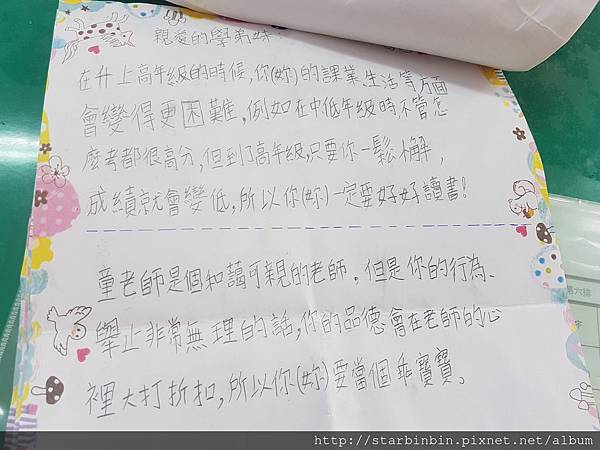 親愛的學弟妹:
在升上高年級的時候,你(妳)的課業、生活等方面
會變得更困難,例如在中低年級時,不管怎
麼考都很高分,但到了高年級,只要你一鬆懈,
成績就會變低,所以你(妳)一定要好好讀書!
童老師是個和藹可親的老師,但是你的行為、
舉止非常無理的話,你的品德會在老師的心
裡大打折扣,所以你(妳)要當個乖寶寶。
第六排
字
http://starbinbin.pixnet.net/album